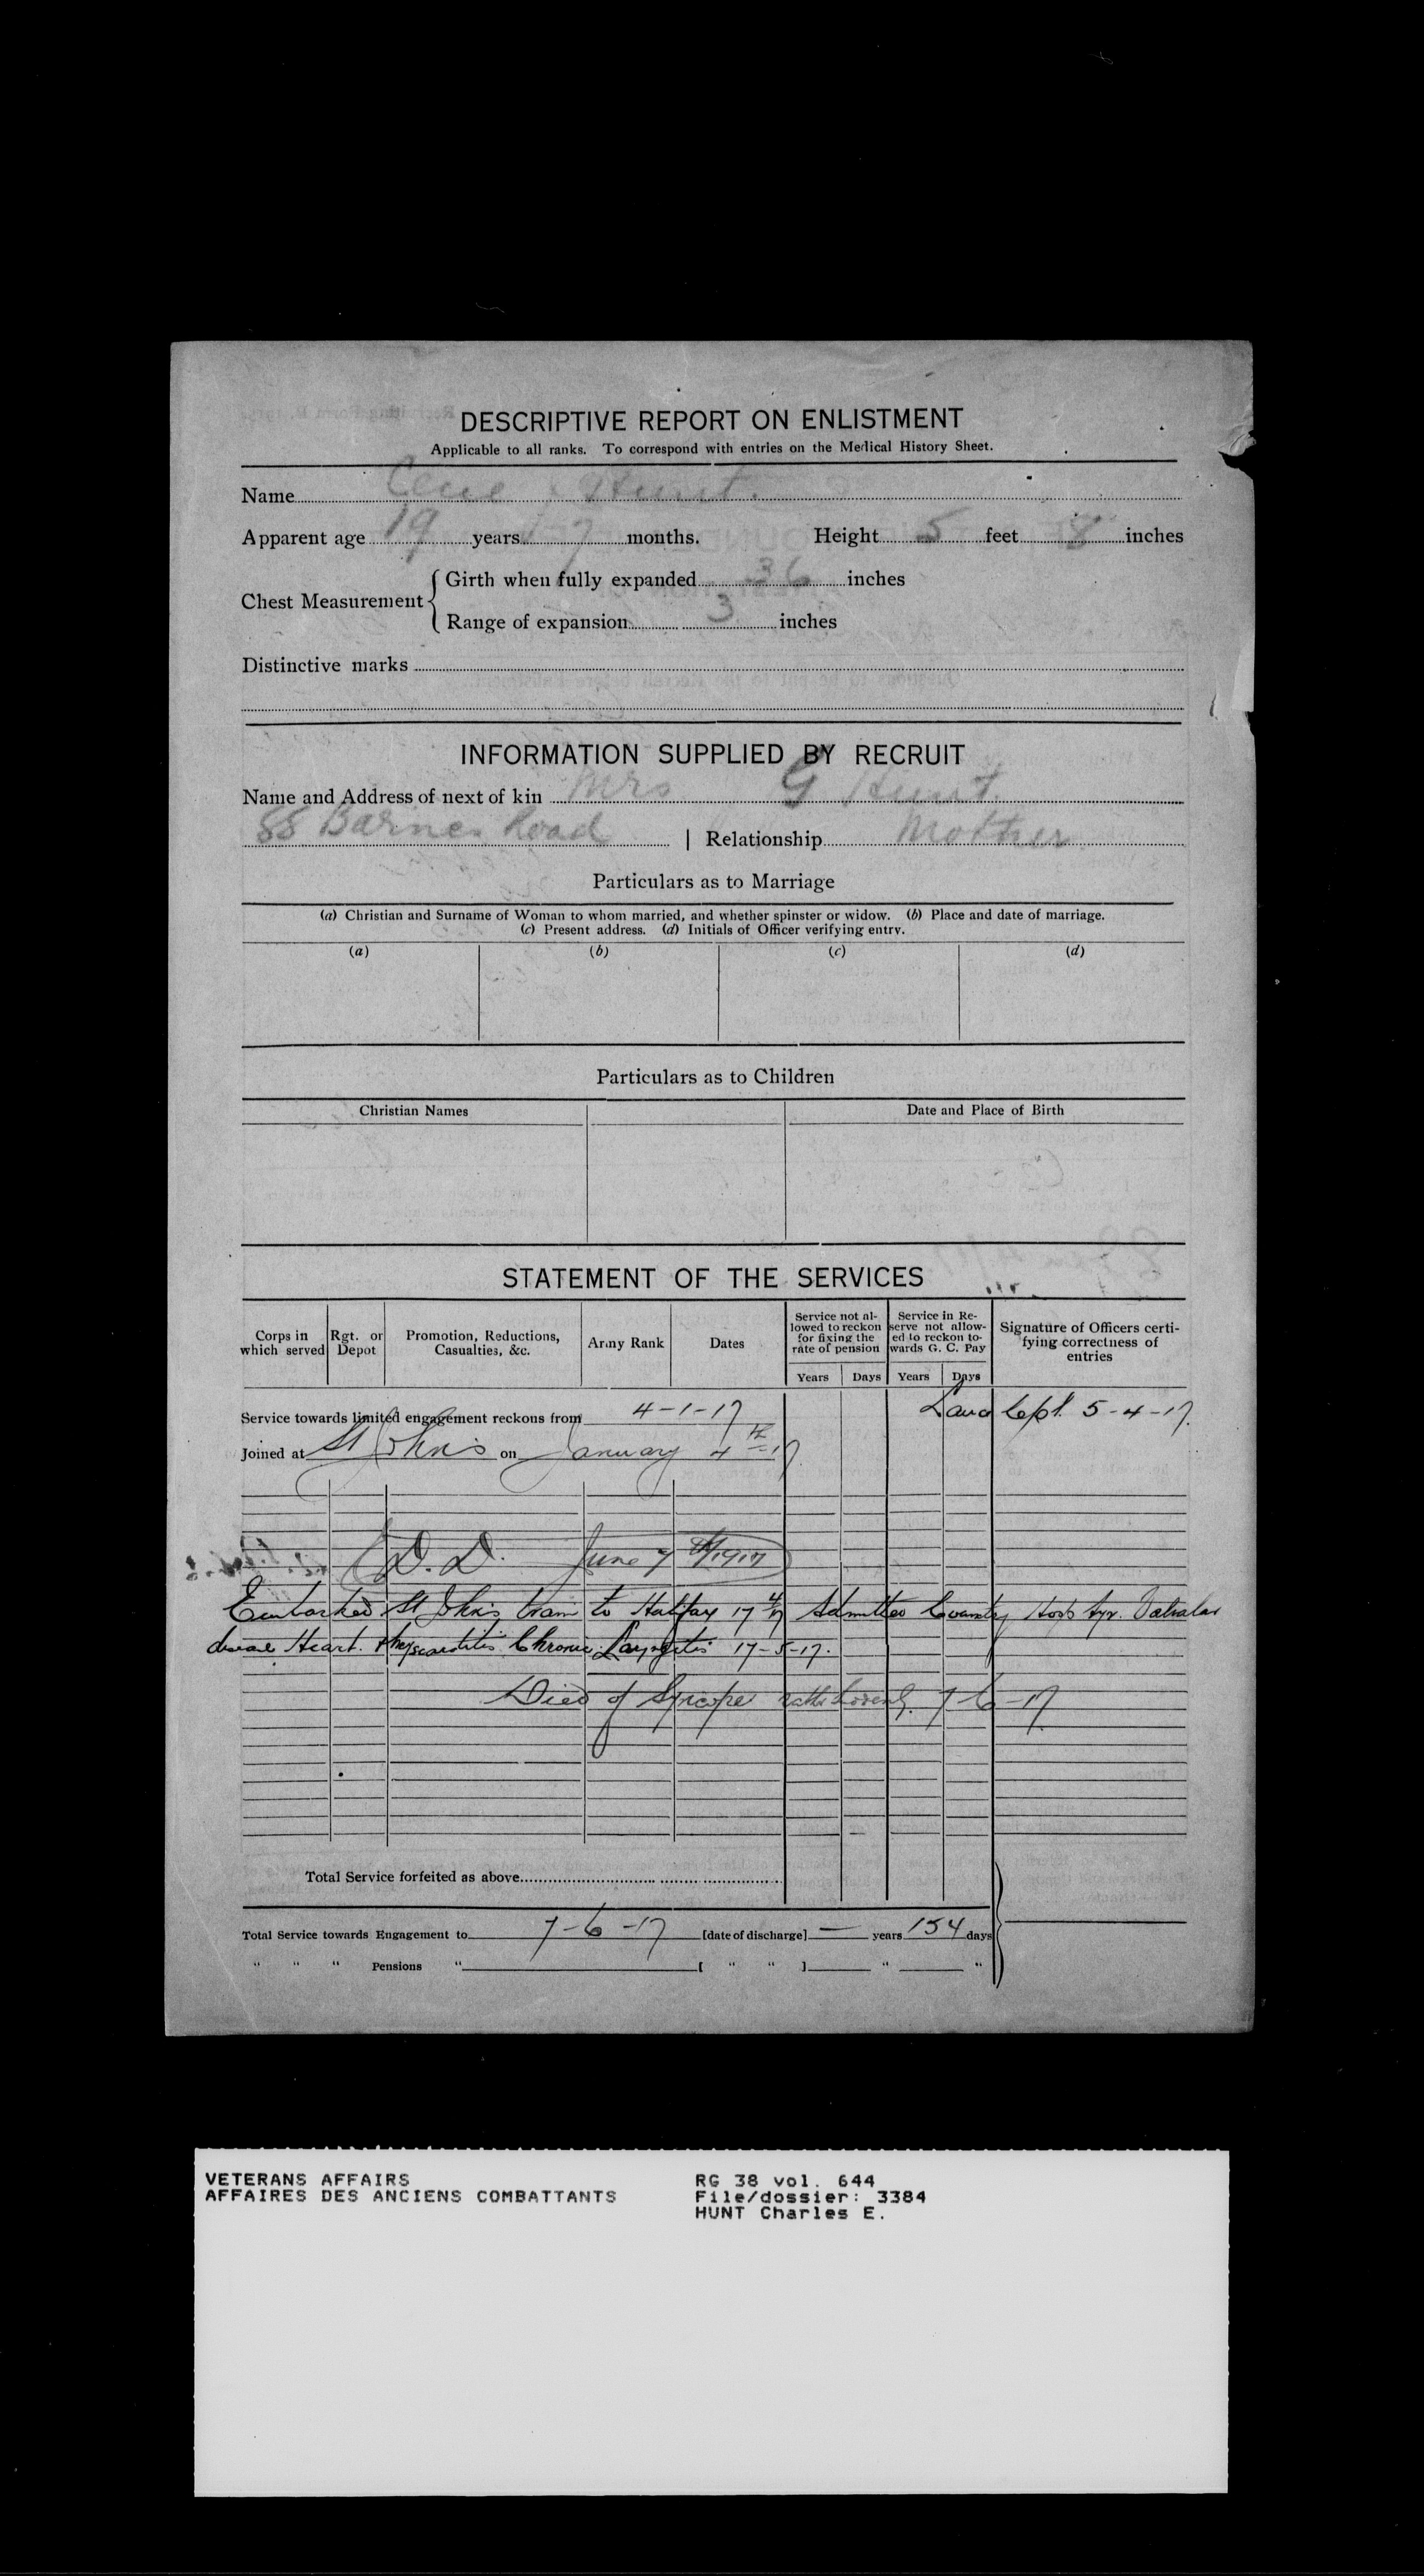 DESCRIPTIVE REPORT ON ENLISTMENT
Applicable to all ranks. To correspond with entries on the Medical History Sheet.
Name Hunt.
Apparent age 19 years 7 months. Height 5 feet 8 inches
Chest Measurement { Girth when fully expanded 36 inches
Range of expansion 3 inches
Distinctive marks
INFORMATION SUPPLIED BY RECRUIT
Name and Address of next of kin Mrs G Hunt.
88 Barnes Road | Relationship Mother
Particulars as to Marriage
(a) Christian and Surname of Woman to whom married, and whether spinster or widow. (b) Place and date of marriage.
(c) Present address. (d) Initials of Officer verifying entry.
(a) (b) (c) (d)
Particulars as to Children
Christian Names Date and Place of Birth
STATEMENT OF THE SERVICES
Corps in which served Rgt. or Depot Promotion, Reductions, Casualties, &c. Army Rank Dates Service not allowed to reckon for fixing the rate of pension Service in Reserve not allowed to reckon towards G. C. Pay Signature of Officers certifying correctness of entries
Years Days Years Days
Service towards limited engagement reckons from 4-1-17 5-4-17.
Joined at St John's on January 4th -17
D. D. June 7th 1917
Embarked St John's train to Halifax 17 4 17 Admitted Hosp
Heart. Chronic Laryngitis 17-5-17.
Died of Syncope 7-6-17
Total Service forfeited as above
Total Service towards Engagement to 7-6-17 [date of discharge] — years 154 days
" " " Pensions " [ " " ] " "
VETERANS AFFAIRS RG 38 vol. 644
AFFAIRES DES ANCIENS COMBATTANTS File/dossier: 3384
HUNT Charles E.